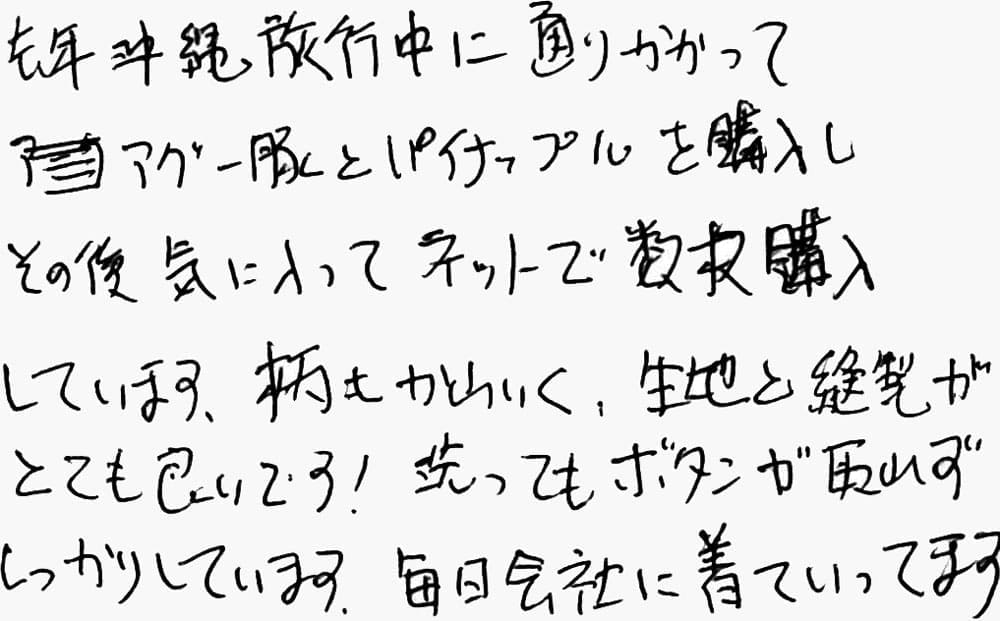 去年沖縄旅行中に通りかかって
アグー豚とパイナップルを購入し
その後気に入ってネットで数枚購入
しています、柄もかわいく、生地と縫製が
とても良いです！洗ってもボタンが取れず
しっかりしています、毎日会社に着ていってます